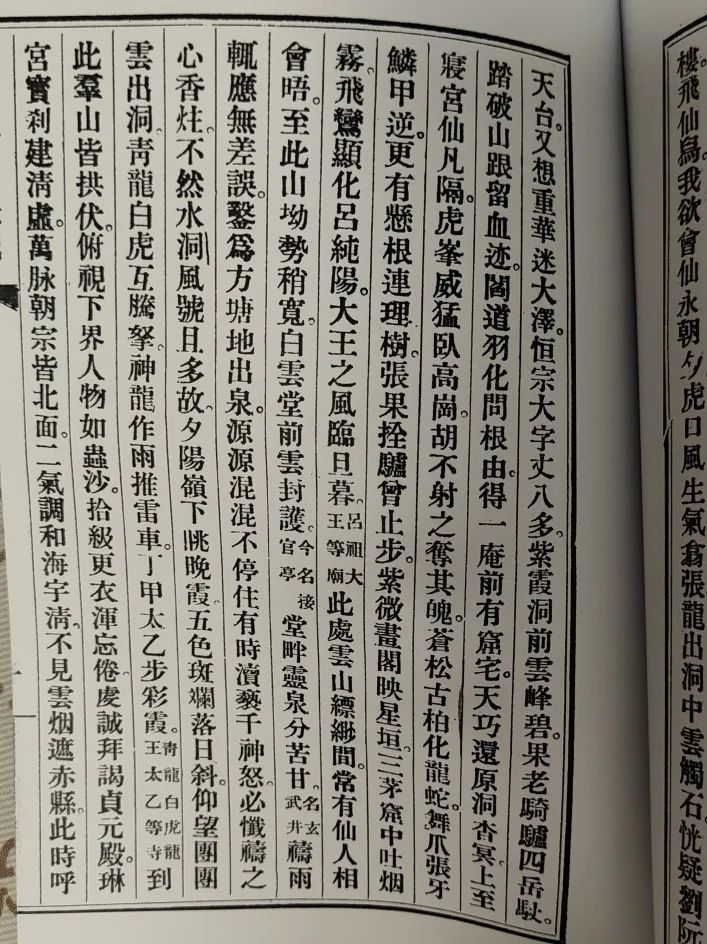 樓。飛仙鳥。我欲會仙永朝夕。虎口風生氣翕張龍出洞中雲觸石。恍疑劉阮
天台。又想重華迷大澤。恒宗大字丈八多。紫霞洞前雲峰碧。果老騎驢四岳馱。
踏破山跟留血迹。閻道羽化問根由。得一庵前有窟宅。天巧還原洞杳冥。上至
寢宮仙凡隔。虎峯威猛臥高崗。胡不射之奪其魄。蒼松古柏化龍蛇。舞爪張牙
鱗甲逆。更有懸根連理樹。張果拴驢曾止步。紫微畫閣映星垣。三茅窟中吐烟
霧。飛鸞顯化呂純陽。大王之風臨旦暮。呂祖大王等廟此處雲山縹緲間。常有仙人相
會晤。至此山坳勢稍寬。白雲堂前雲封護。今名接官亭堂畔靈泉分苦甘。名玄武井禱雨
輒應無差誤。鑿爲方塘地出泉。源源混混不停住有時瀆褻千神怒必懺禱之
心香炷。不然水洞風號且多故。夕陽嶺下眺晚霞。五色斑斕落日斜。仰望團團
雲出洞。靑龍白虎互騰拏。神龍作雨推雷車。丁甲太乙步彩霞。靑龍白虎龍王太乙等寺到
此羣山皆拱伏。俯視下界人物如蟲沙。拾級更衣渾忘倦。虔誠拜謁貞元殿。琳
宮寶刹建淸虛。萬脉朝宗皆北面。二氣調和海宇淸。不見雲烟遮赤縣。此時呼